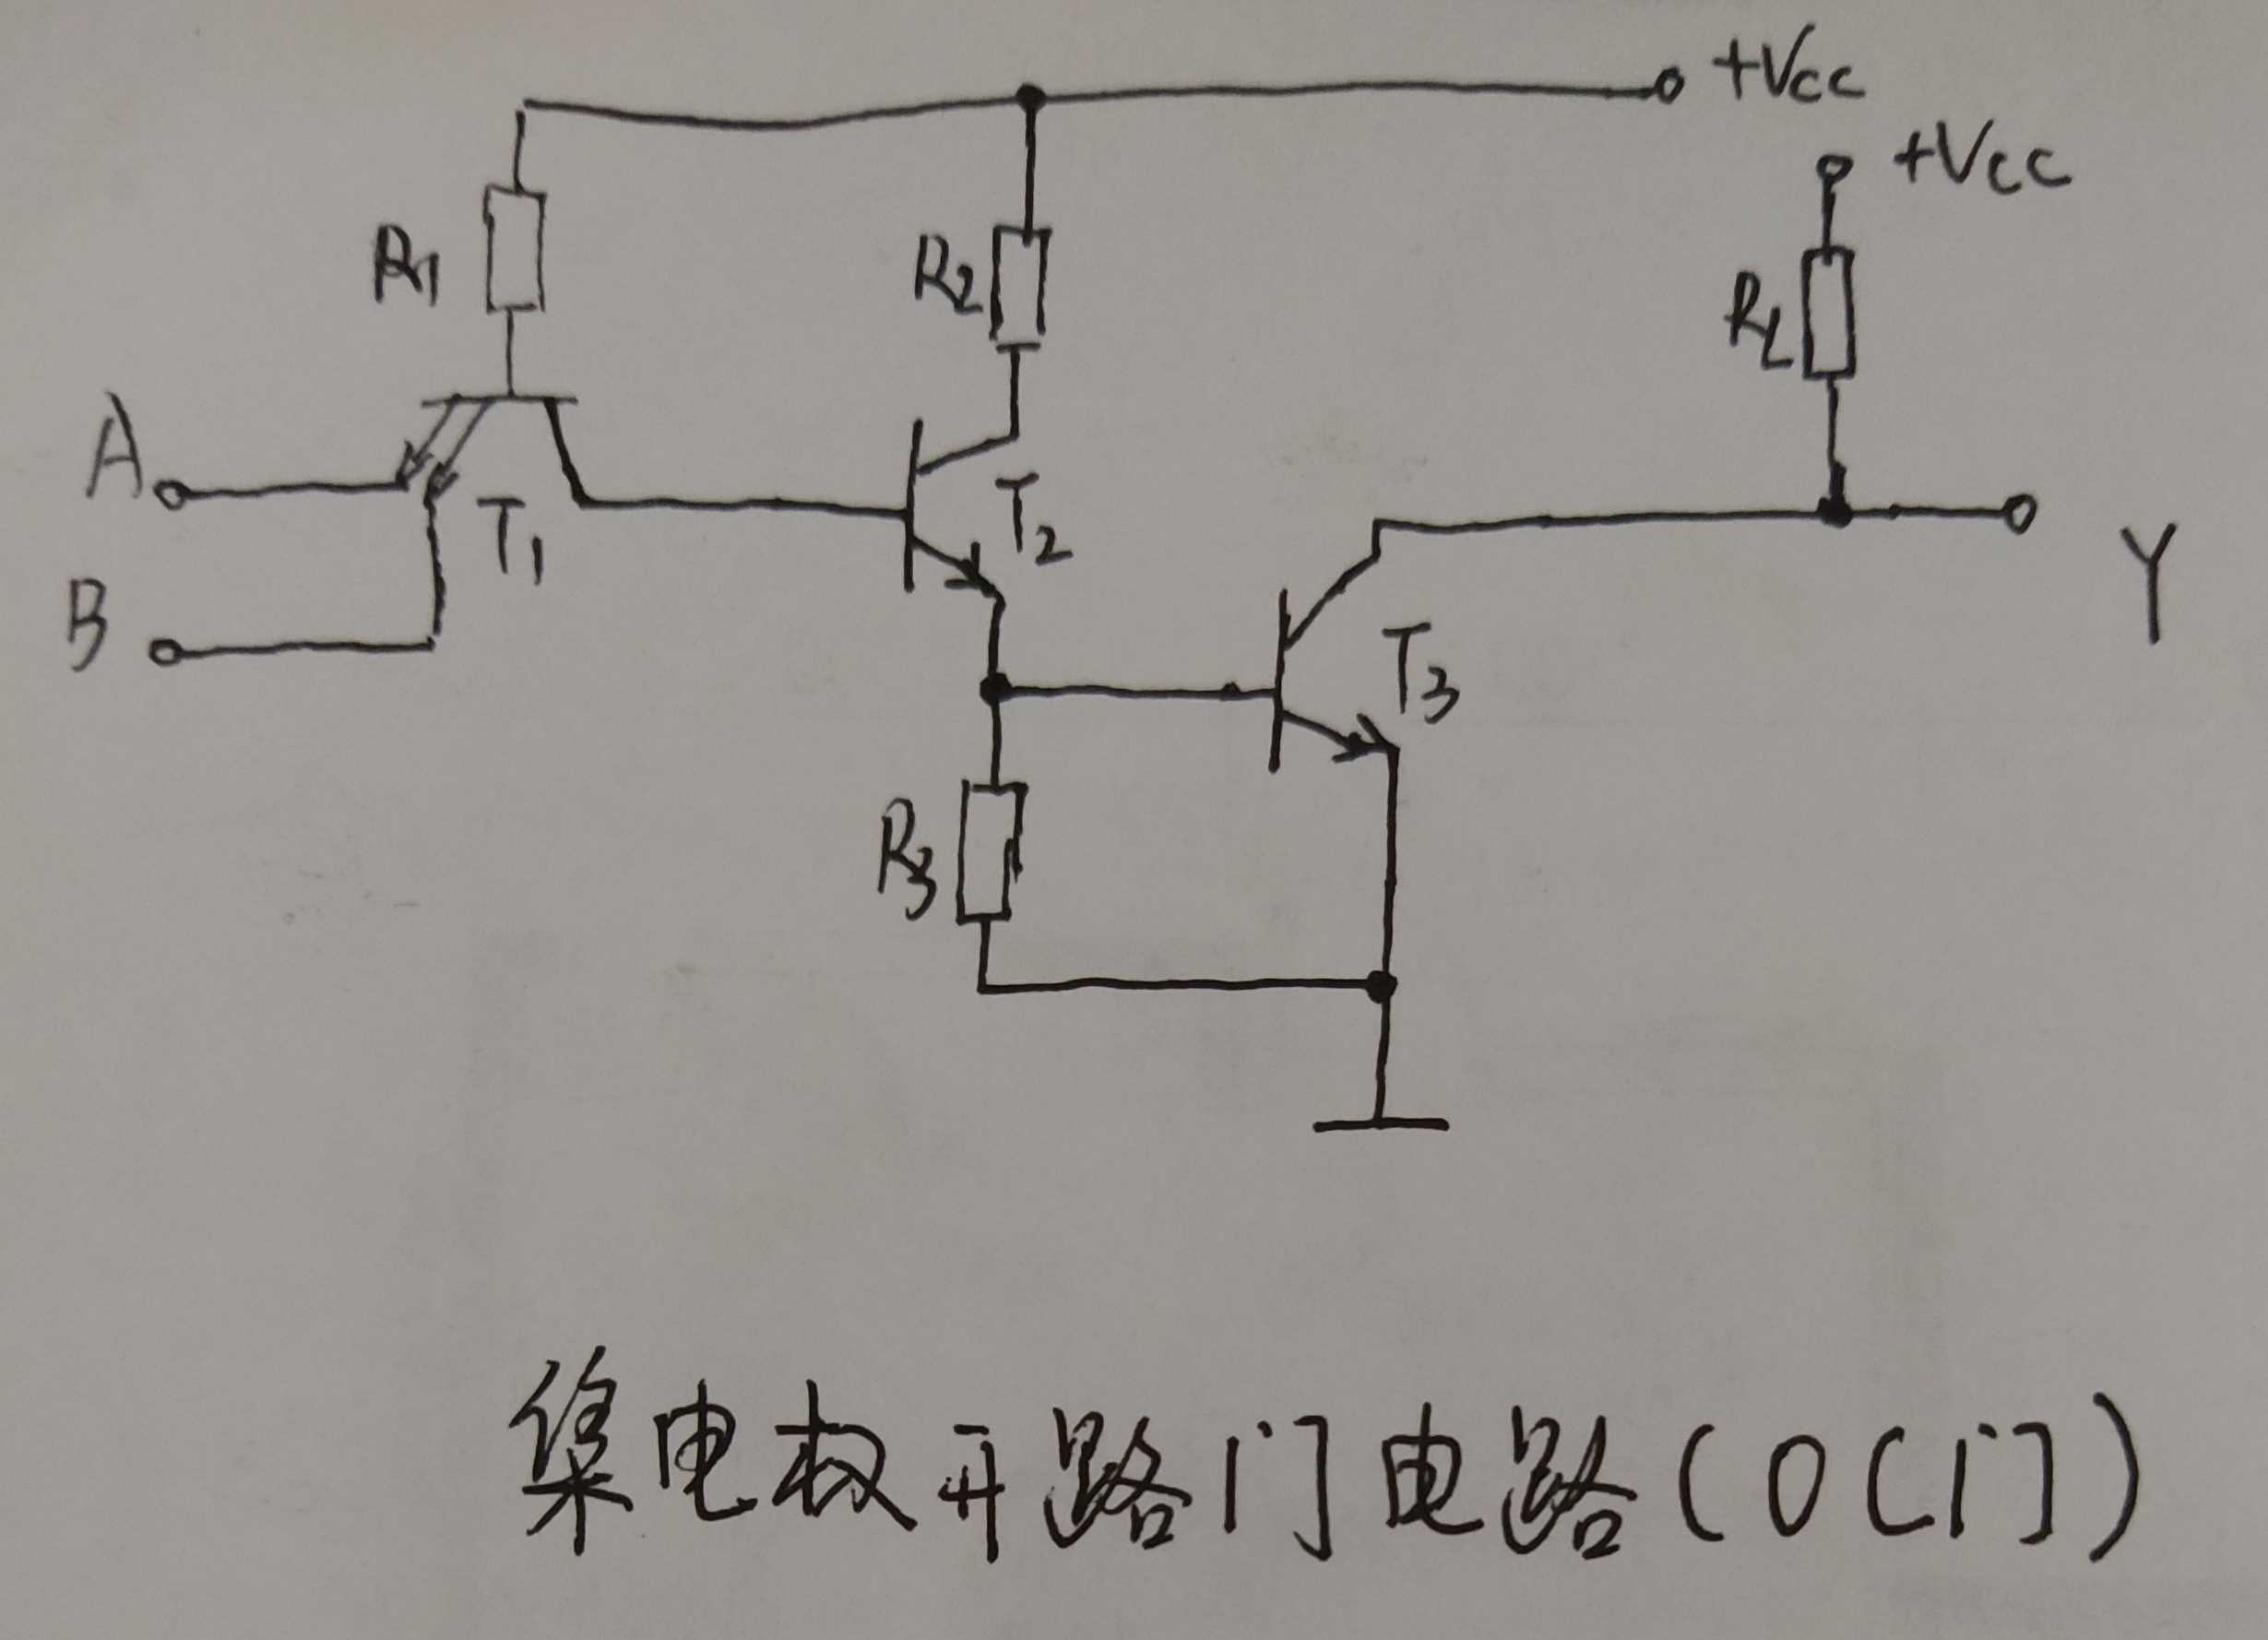 +Vcc
+Vcc
R1
R2
RL
A
T1
T2
B
Y
T3
R3
集电极开路门电路(OC门)